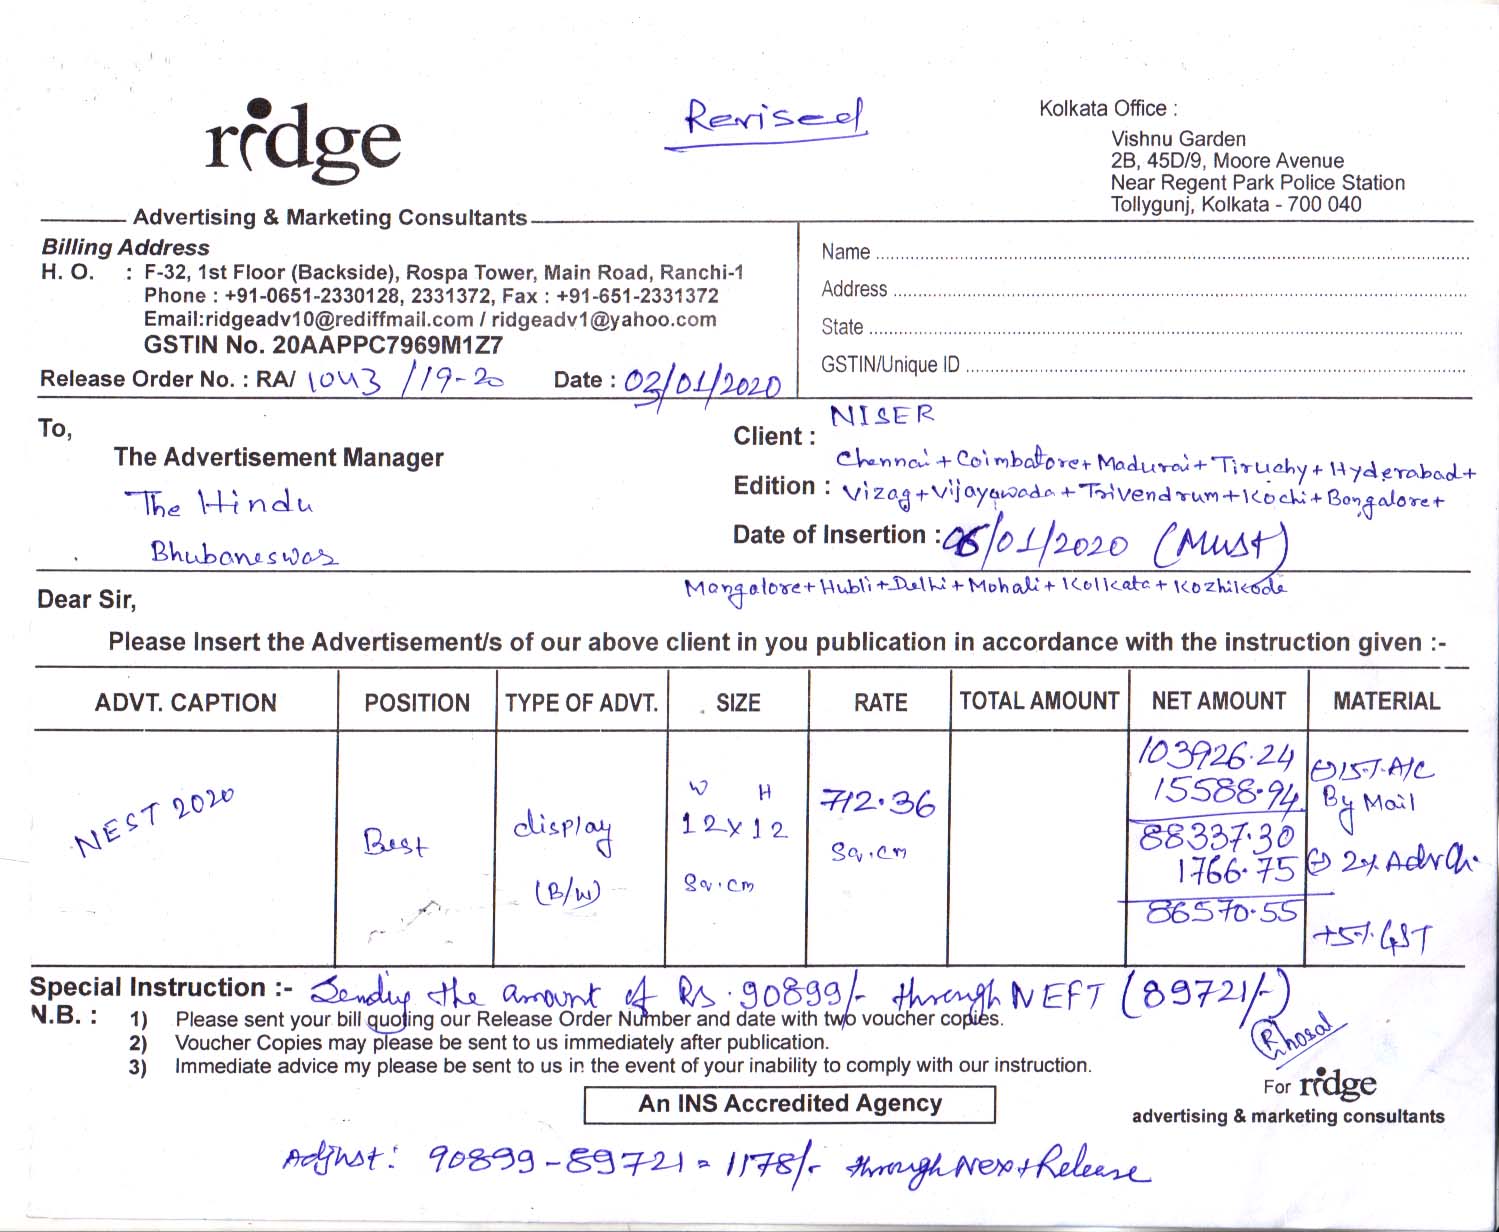 ridge
Revised
Kolkata Office :
Vishnu Garden
2B, 45D/9, Moore Avenue
Near Regent Park Police Station
Tollygunj, Kolkata - 700 040
Advertising & Marketing Consultants
Billing Address
H. O. : F-32, 1st Floor (Backside), Rospa Tower, Main Road, Ranchi-1
Phone : +91-0651-2330128, 2331372, Fax : +91-651-2331372
Email:ridgeadv10@rediffmail.com / ridgeadv1@yahoo.com
GSTIN No. 20AAPPC7969M1Z7
Release Order No. : RA/ 1043 /19-20 Date : 03/01/2020
Name
Address
State
GSTIN/Unique ID
To,
The Advertisement Manager
The Hindu
Bhubaneswar
Client : NISER
Edition : Chennai + Coimbatore + Madurai + Tiruchy + Hyderabad +
Vizag + Vijayawada + Trivendrum + Kochi + Bongalore +
Date of Insertion : 06/01/2020 (Must)
Mangalore + Hubli + Delhi + Mohali + Kolkata + Kozhikode
Dear Sir,
Please Insert the Advertisement/s of our above client in you publication in accordance with the instruction given :-
ADVT. CAPTION POSITION TYPE OF ADVT. SIZE RATE TOTAL AMOUNT NET AMOUNT MATERIAL
NEST 2020
Best
display
(B/W)
W H
12 x 12
Sq.cm
712.36
Sq.cm
103926.24
15588.94
88337.30
1766.75
86570.55
(-) 15% A/C
By Mail
(-) 2% Adv Ch.
+5% GST
Special Instruction :- Sending the amount of Rs. 90899/- through NEFT (89721/-)
N.B. : 1) Please sent your bill quoting our Release Order Number and date with two voucher copies.
2) Voucher Copies may please be sent to us immediately after publication.
3) Immediate advice my please be sent to us in the event of your inability to comply with our instruction.
For ridge
advertising & marketing consultants
An INS Accredited Agency
Adjust: 90899 - 89721 = 1178/- through Next Release